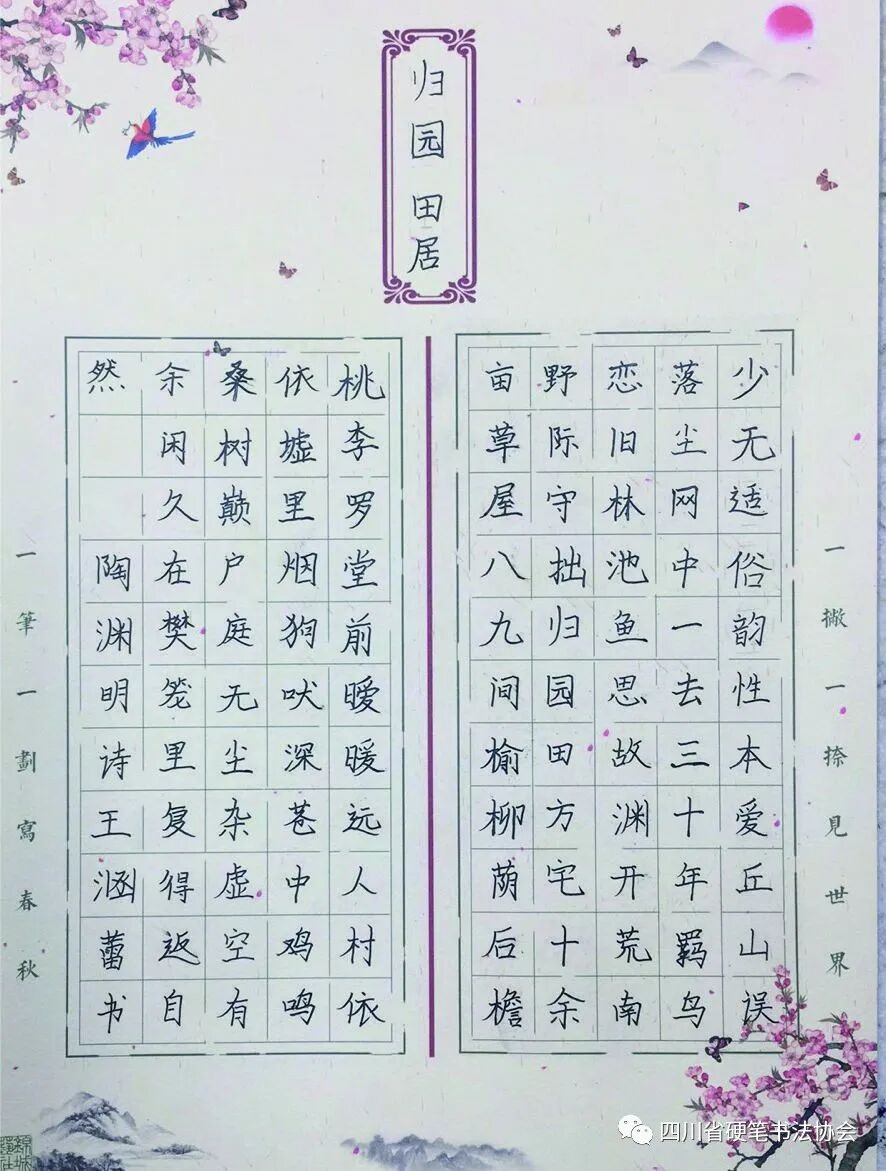 归园田居
一撇一捺見世界
少无适俗韵性本爱丘山误
落尘网中一去三十年羁鸟
恋旧林池鱼思故渊开荒南
野际守拙归园田方宅十余
亩草屋八九间榆柳荫后檐
桃李罗堂前暧暖远人村依
依墟里烟狗吠深苍中鸡鸣
桑树颠户庭无尘杂虚空有
余闲久在樊笼里复得返自
然 陶渊明诗王涵蕾书
一筆一劃寫春秋
四川省硬笔书法协会